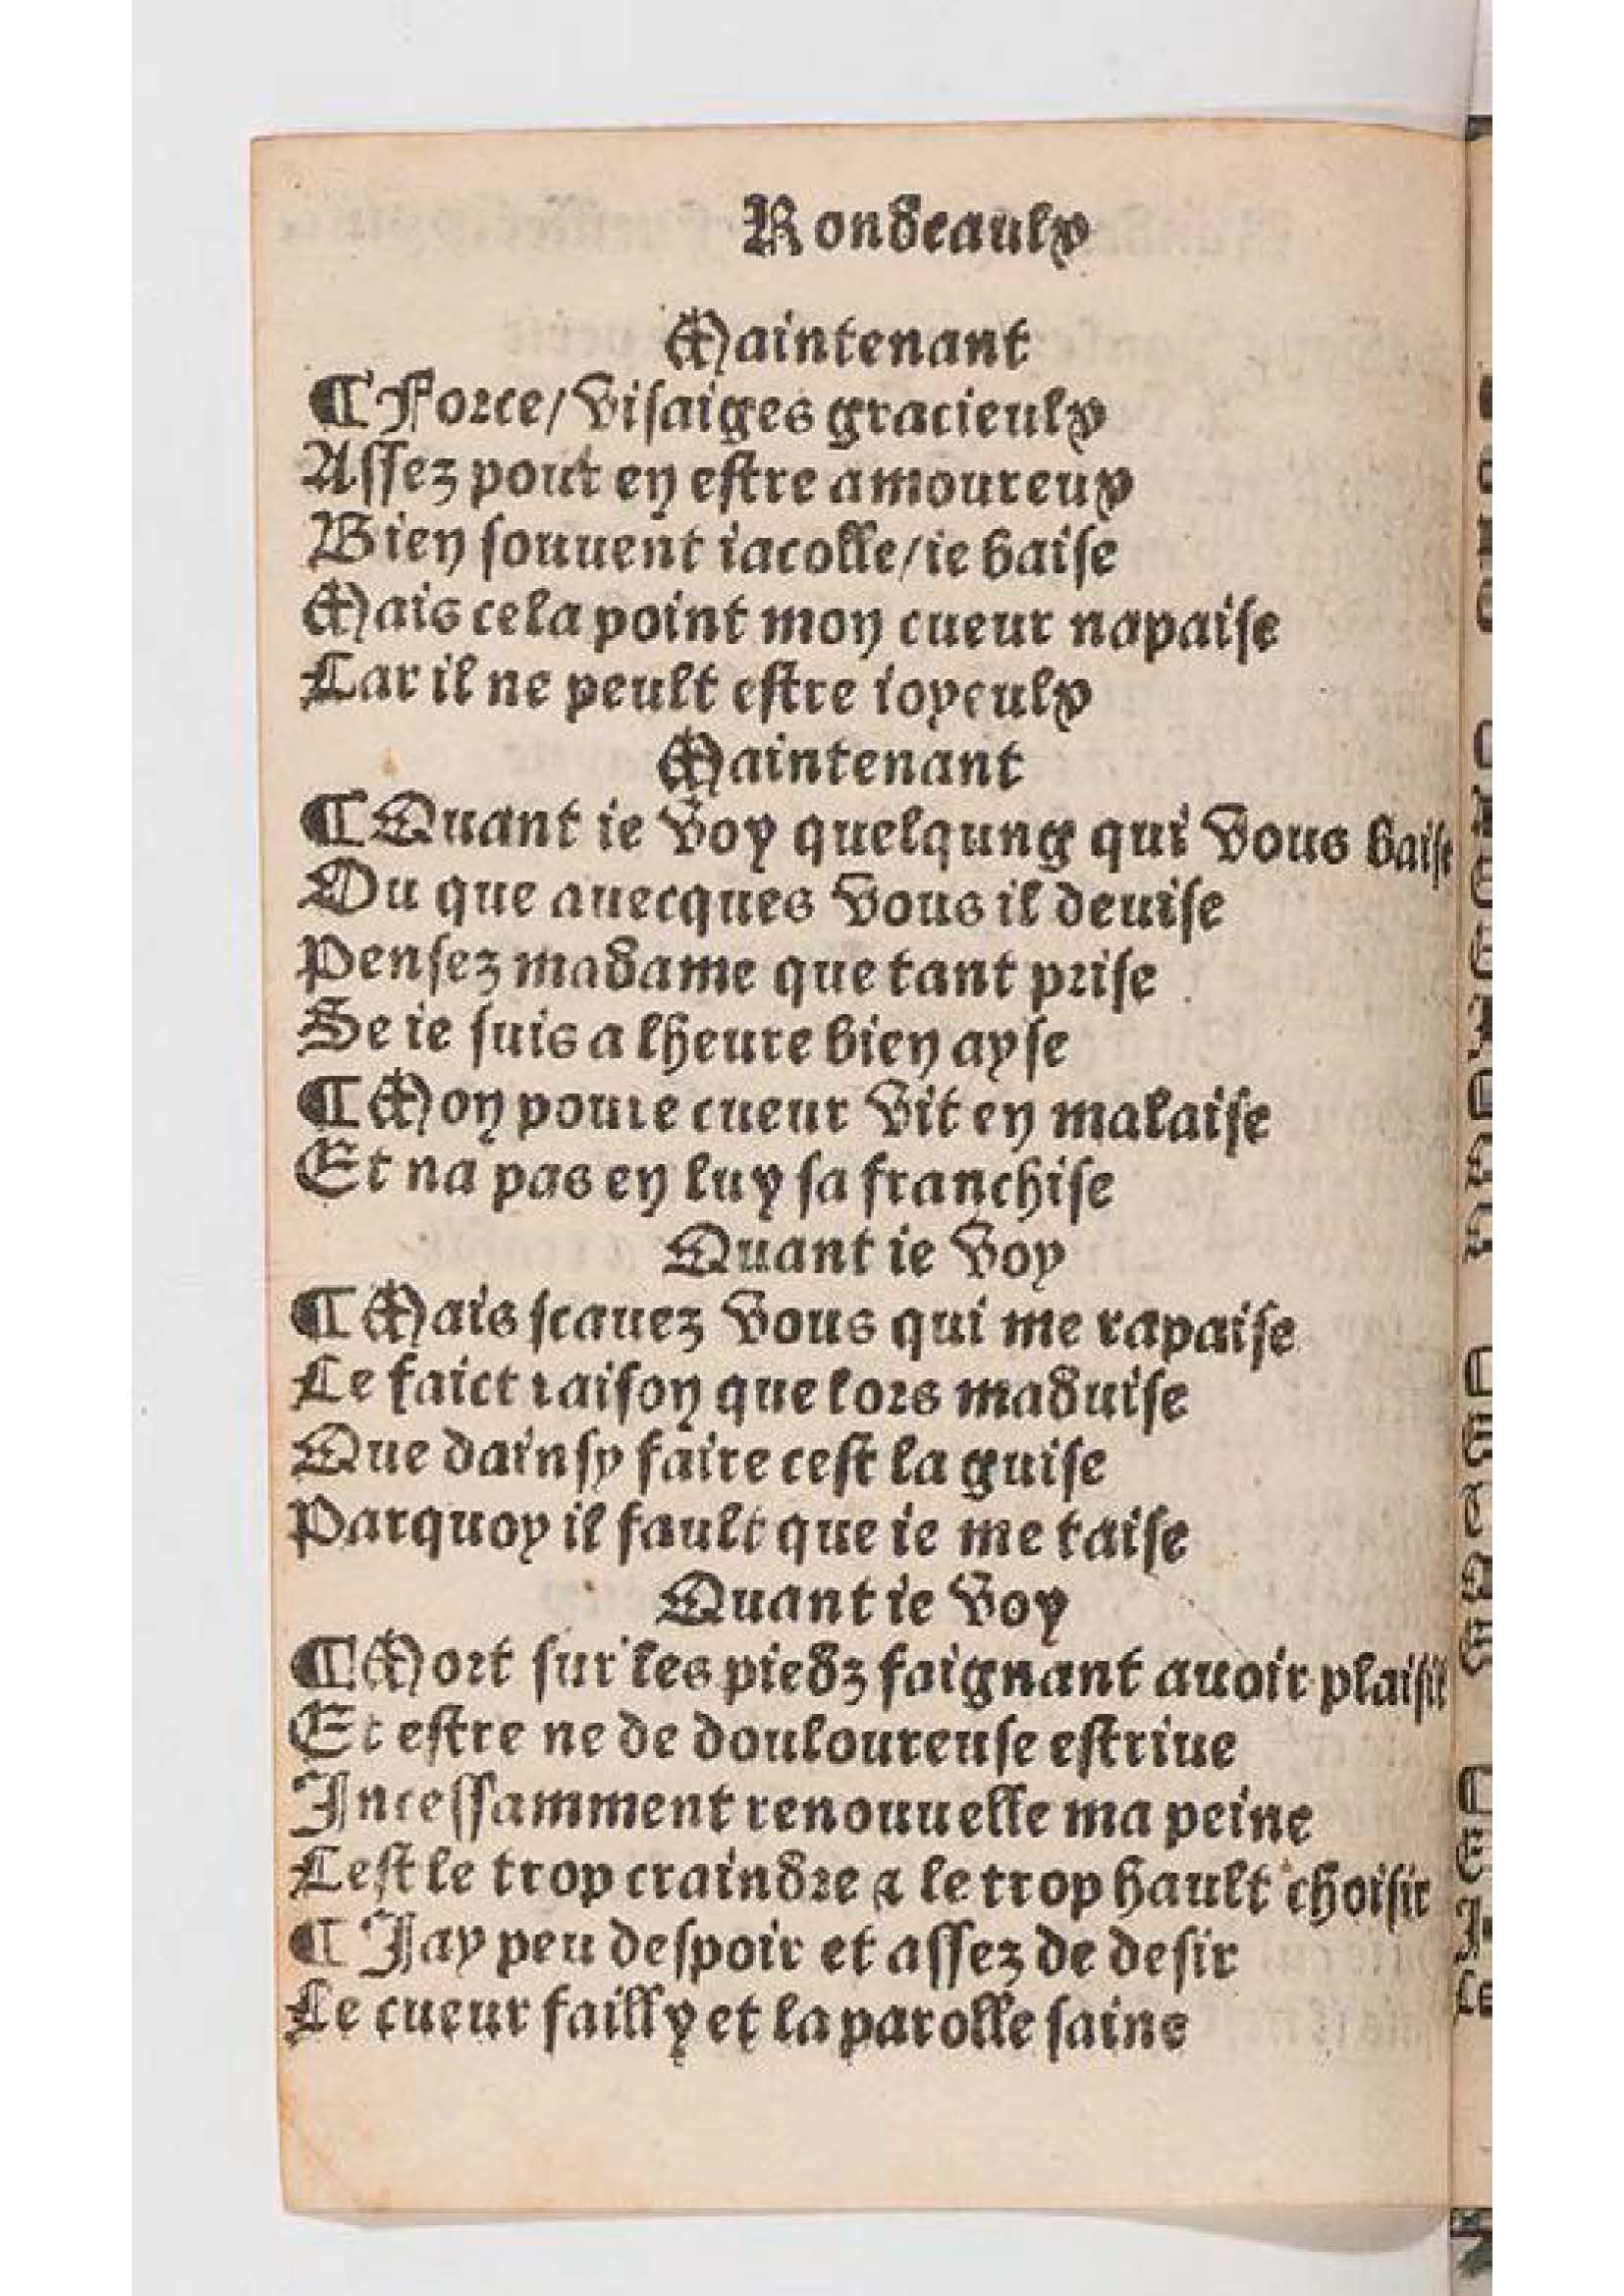 Rondeaulx
Maintenant
¶ Force/ visaiges gracieulx
Assez pour en estre amoureux
Bien souuent iacolle/ ie baise
Mais cela point mon cueur napaise
Car il ne peult estre ioyeulx
Maintenant
¶ Quant ie voy quelqung qui vous baise
Ou que auecques vous il deuise
Pensez madame que tant prise
Se ie suis a lheure bien ayse
¶ Mon poure cueur vit en malaise
Et na pas en luy sa franchise
Quant ie voy
¶ Mais scauez vous qui me rapaise
Ce faict raison que lors maduise
Que dainsy faire cest la guise
Parquoy il fault que ie me taise
Quant ie voy
¶ Mort sur les piedz faignant auoir plaisir
Et estre ne de douloureuse estriue
Incessamment renouuelle ma peine
Cest le trop craindre & le trop hault choisir
¶ Jay peu despoir et assez de desir
Le cueur failly et la parolle saine